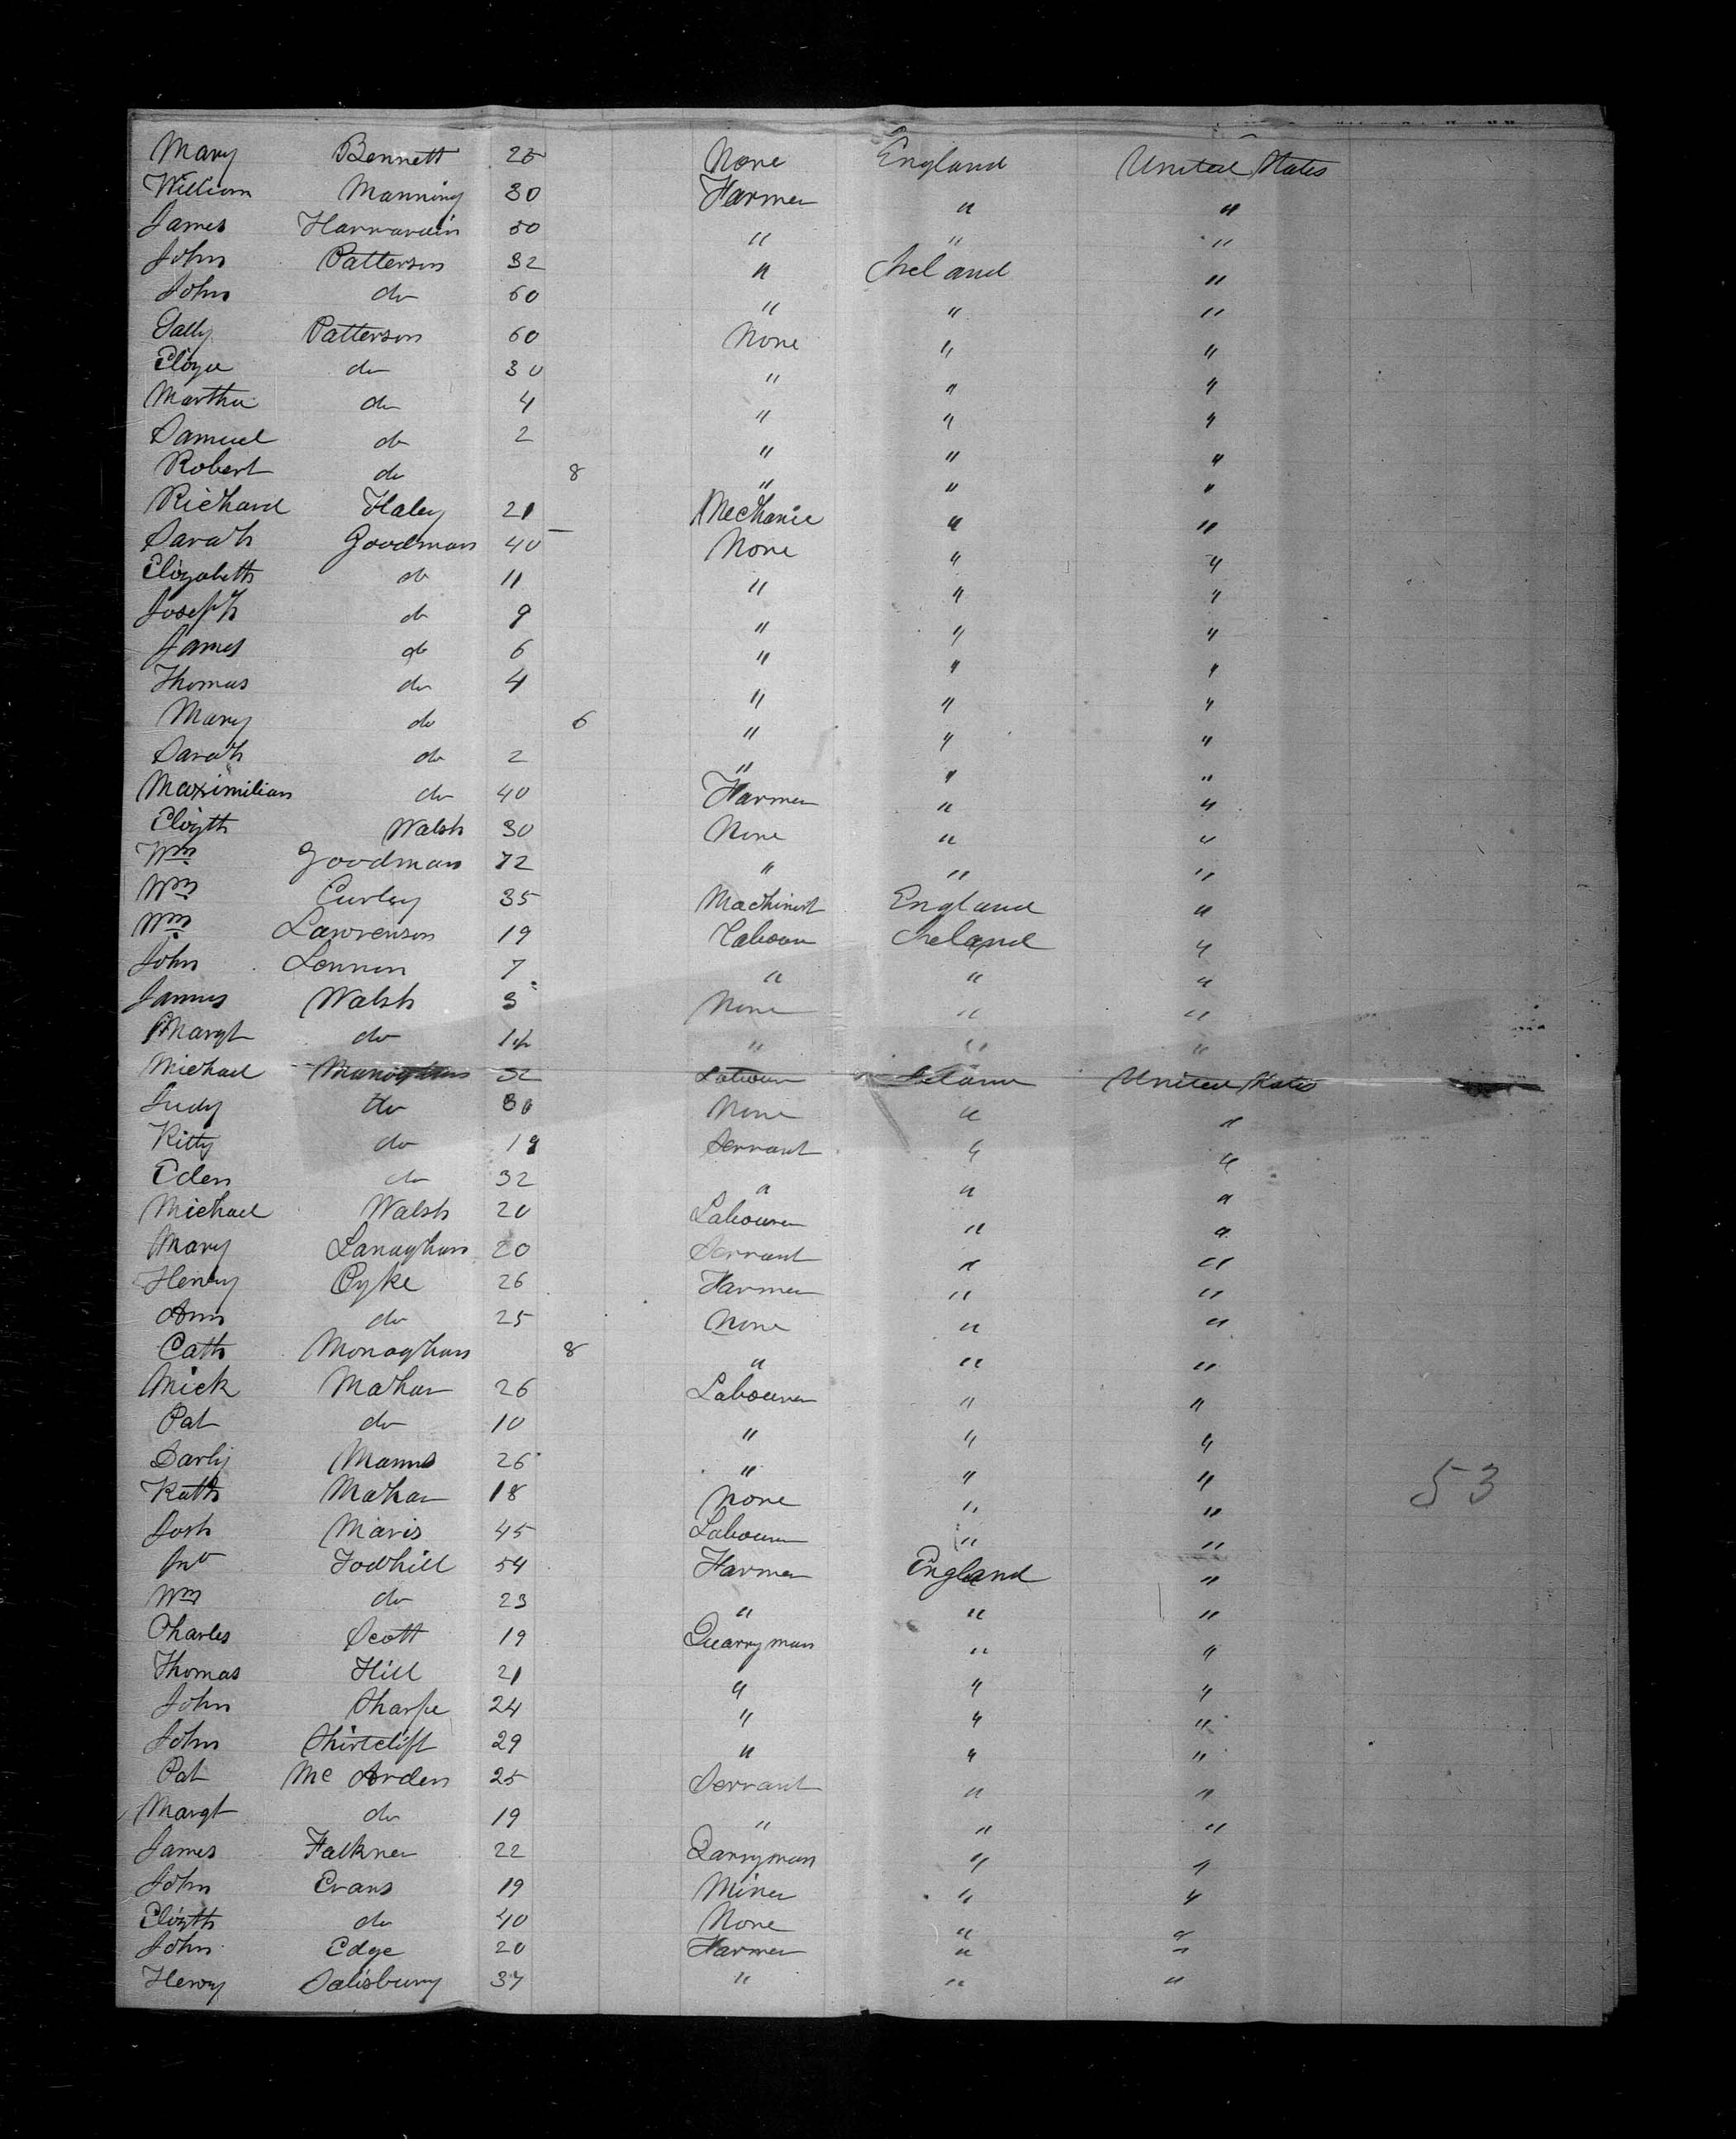 Mary Bennett 25 None England United States
William Manning 30 Farmer " "
James 50 " " "
John Patterson 32 " Ireland "
John do 60 " " "
Sally Patterson 60 None " "
Eliza do 30 " " "
Martha do 4 " " "
Samuel do 2 " " "
Robert do 8 " " "
Richard Haley 21 Mechanic " "
Sarah Goodman 40 None " "
Elizabeth do 11 " " "
Joseph do 9 " " "
James do 6 " " "
Thomas do 4 " " "
Mary do 6 " " "
Sarah do 2 " " "
Maximilian do 40 Farmer " "
Elizth Walsh 30 None " "
Wm Goodman 72 " " "
Wm Curley 35 Machinist England "
Wm Lawrenson 19 Labour Ireland "
John Lennon 7 " " "
James Walsh 3 None " "
Margt do " " "
Michael 32 Labour Ireland United States
Judy do 30 None " "
Kitty do 19 Servant " "
Eden do 32 " " "
Michael Walsh 20 Labourer " "
Mary Lanaghan 20 Servant " "
Henry Pyke 26 Farmer " "
Ann do 25 None " "
Cath Monaghan 8 " " "
Mick Mahan 26 Labourer " "
Pat do 10 " " "
Darby Manns 26 " " "
Kath Mahan 18 None " "
53
Josh Maris 45 Labour " "
Jno Todhill 54 Farmer England "
Wm do 23 " " "
Charles Scott 19 Quarryman " "
Thomas Hill 21 " " "
John Sharpe 24 " " "
John Shirtclift 29 " " "
Pat Mc Arden 25 Servant " "
Margt do 19 " " "
James Falkner 22 Qarryman " "
John Evans 19 Miner " "
Elizth do 40 None " "
John Edge 20 Farmer " "
Henry Salisbury 37 " " "